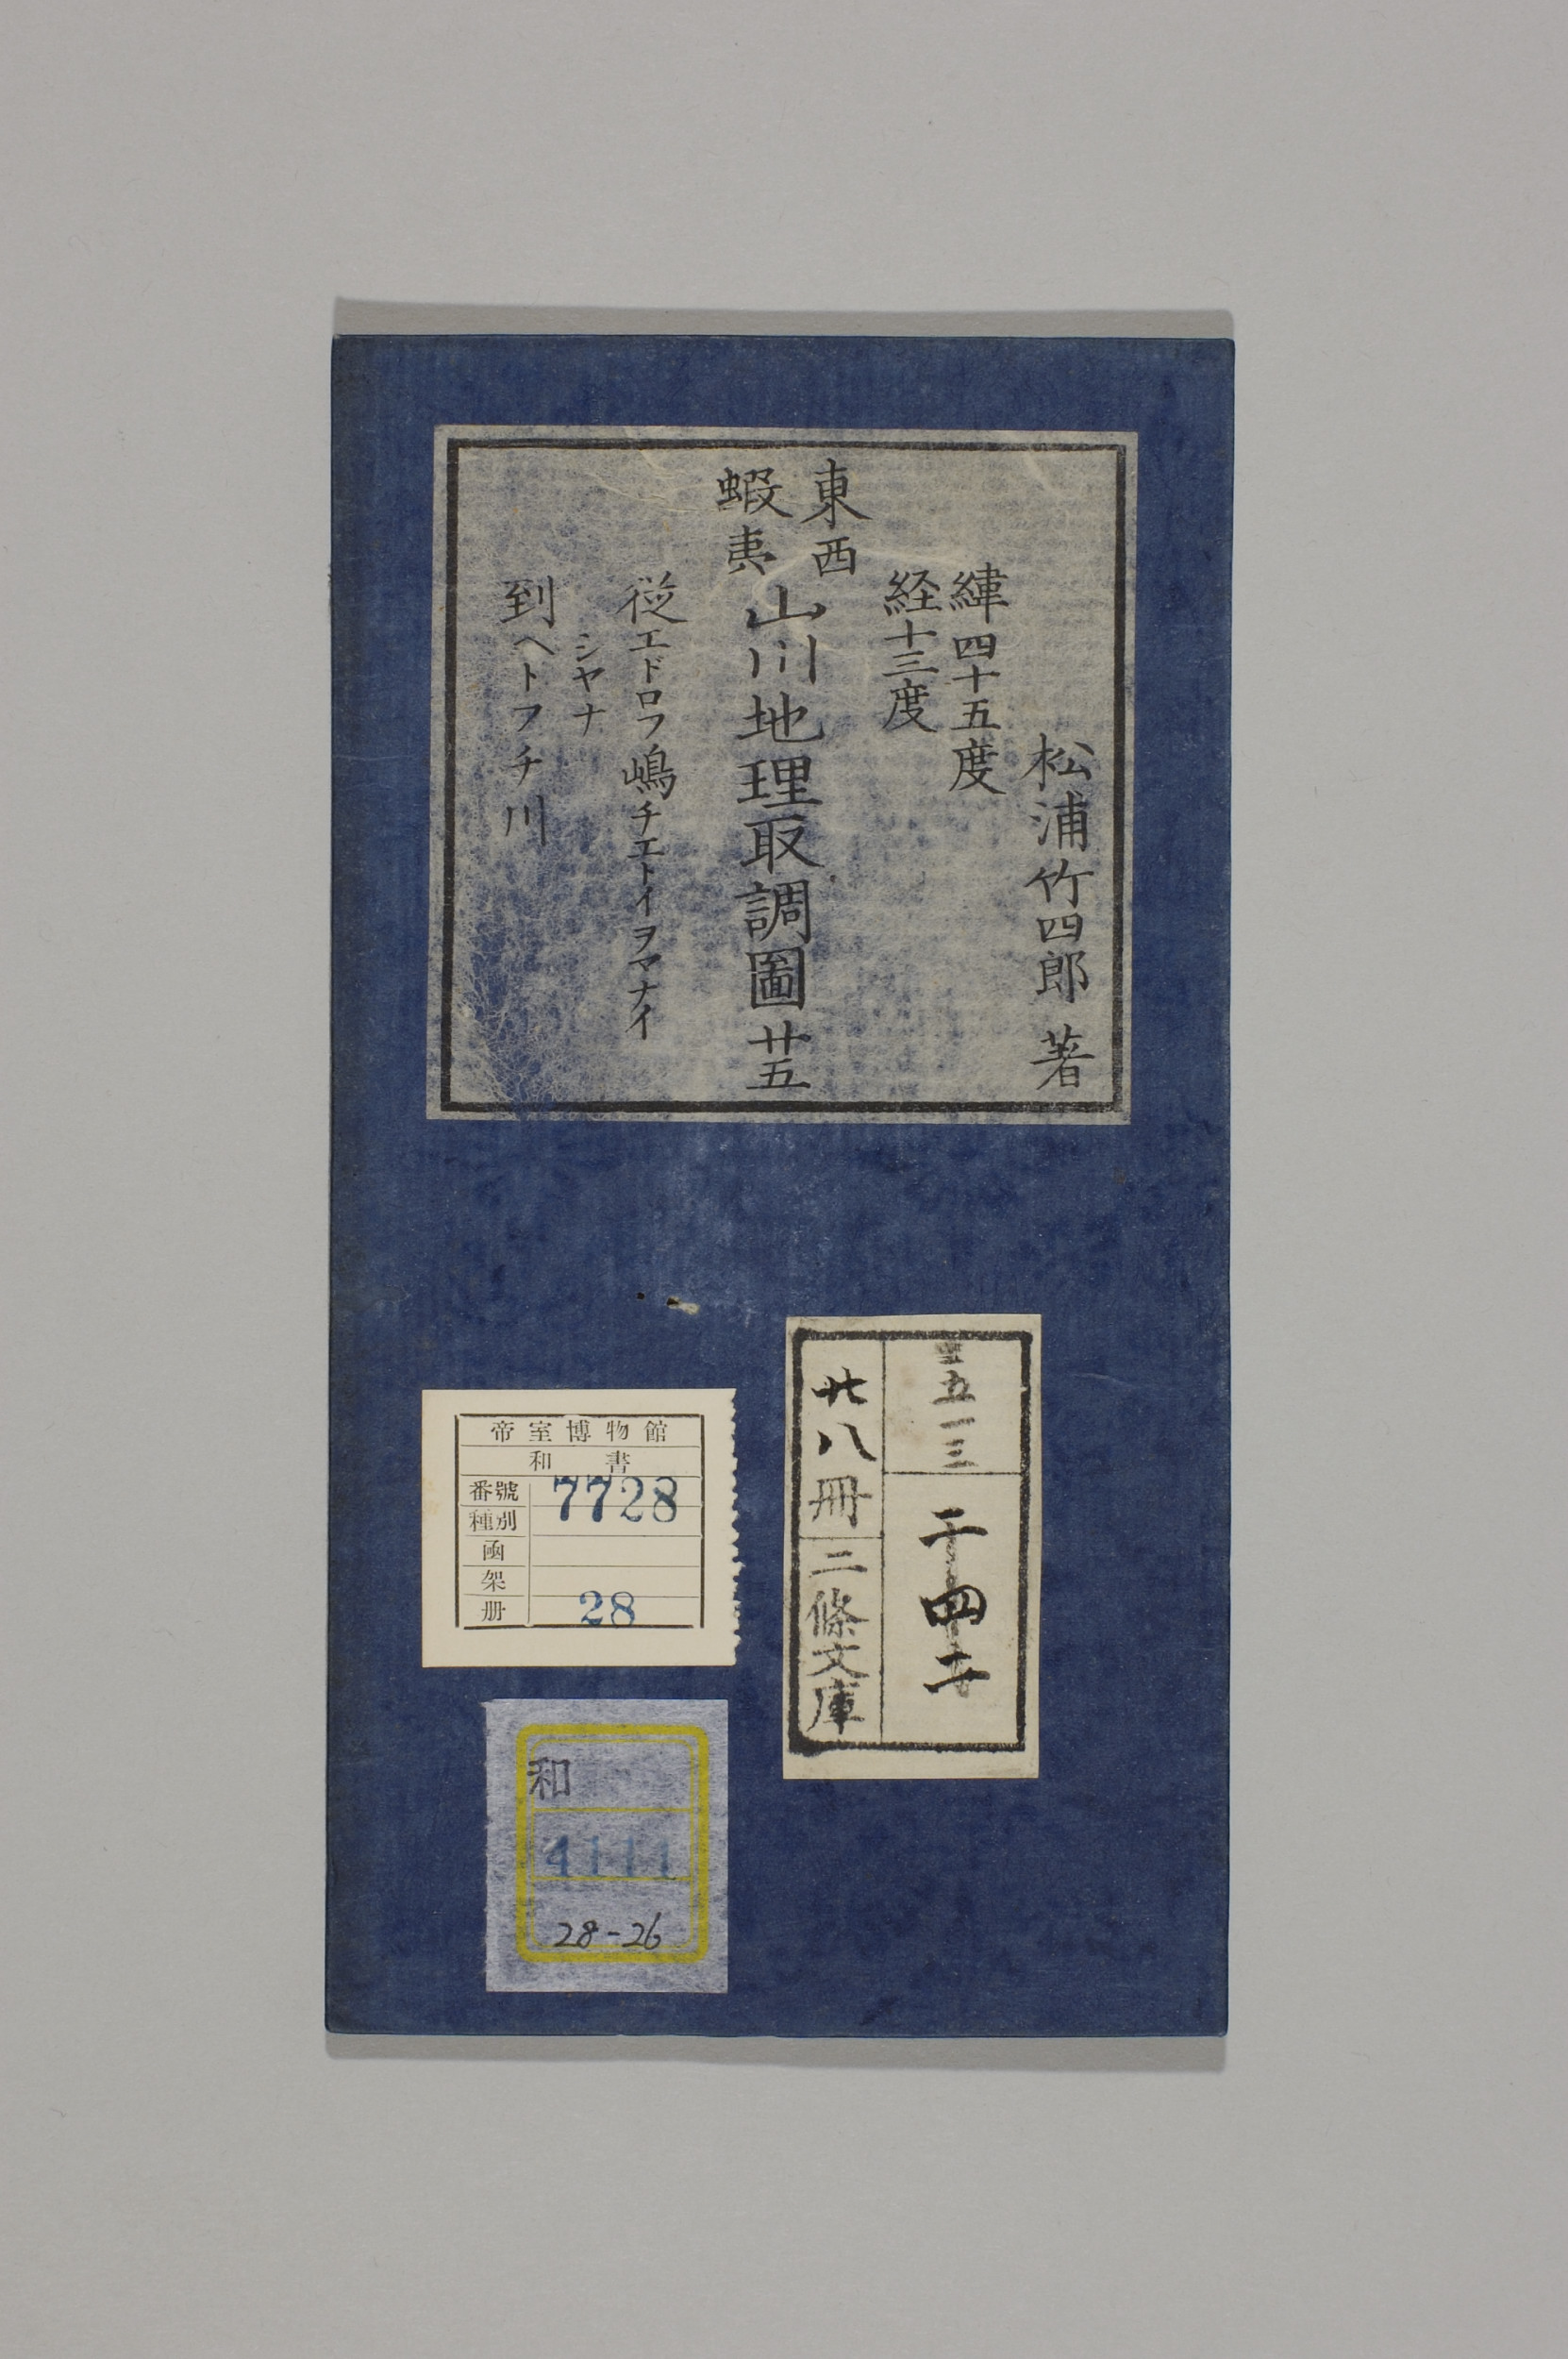 松浦竹四郎著
緯四十五度
経十三度
東西
蝦夷
山川地理取調圖廿五
従エドロフ嶋チエトイヲマナイ
シヤナ
到ヘトフチ川
五一三
千四二
廿八冊
二條文庫
帝室博物館
和書
番號 7728
種別
函
架
册 28
和
4111
28-26